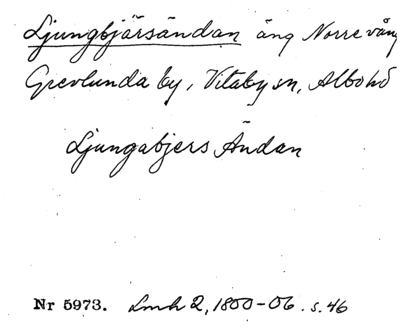 Ljungbjärsändan äng Norrevång
Grevlunda by, Vitaby sn, Albo hd
Ljungabjers Ändan
Nr 5973. Lmh 2, 1800-06. s. 46